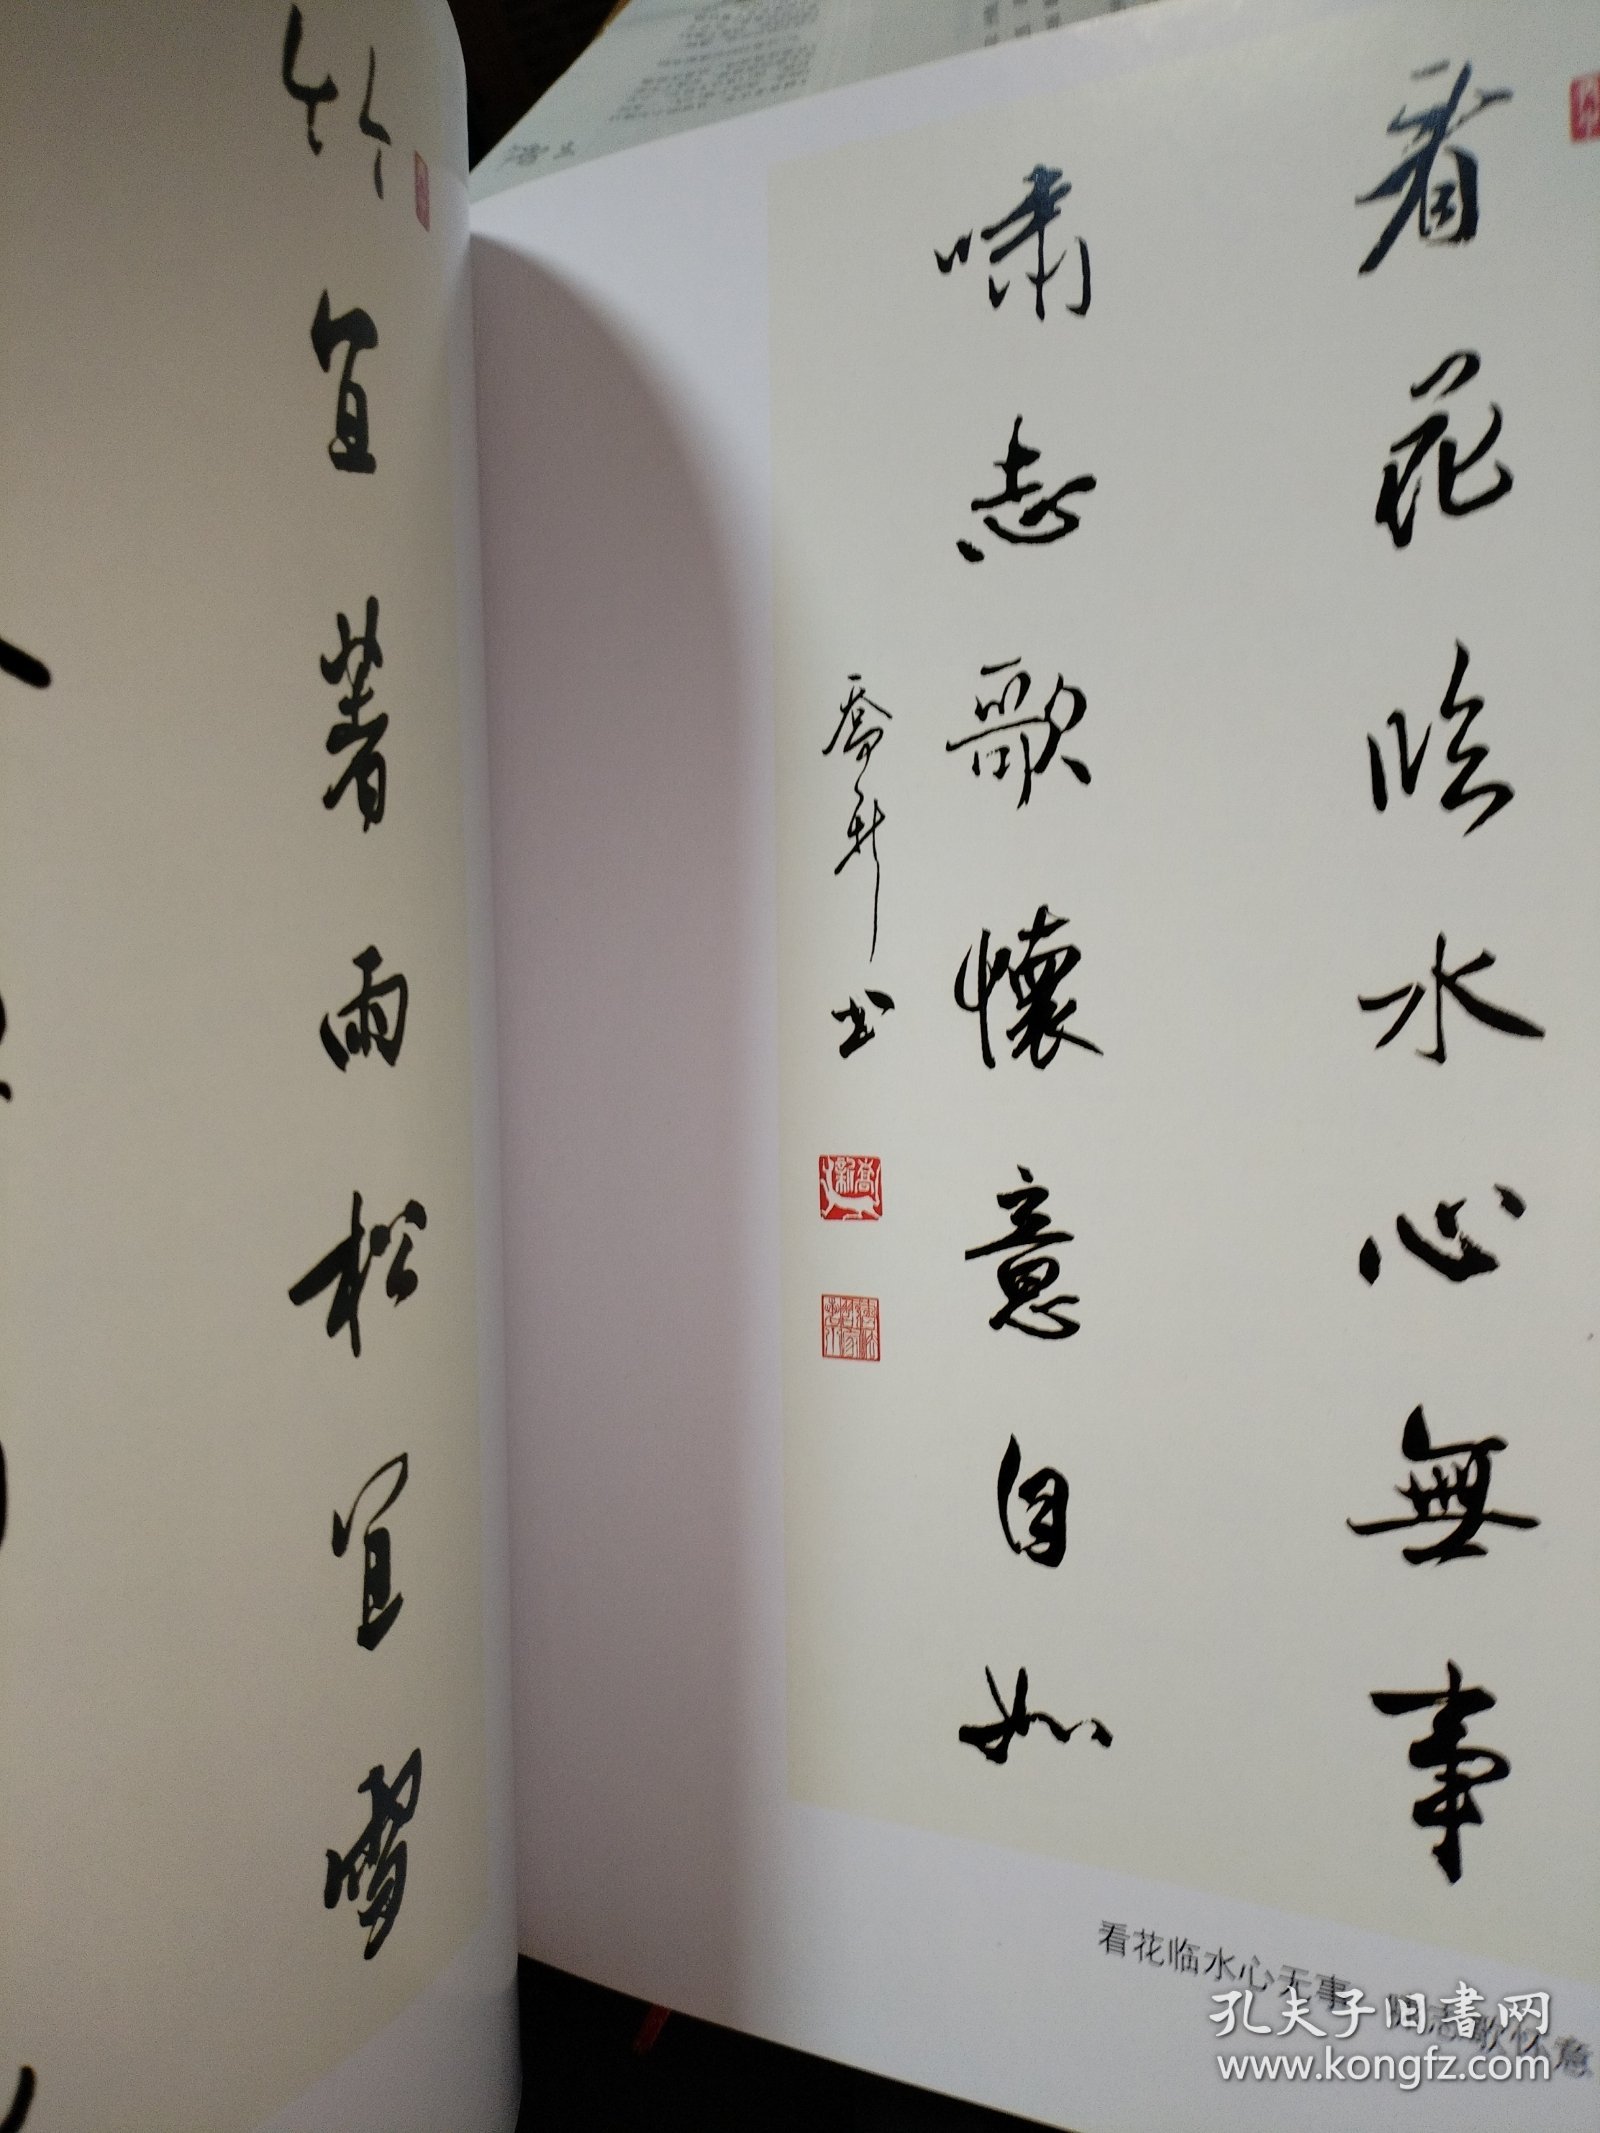 竹宜著雨松宜雪
看花臨水心無事
嘯志歌懷意自如
喬新書
喬新
看花临水心无事 啸志歌怀意
孔夫子旧书网
www.kongfz.com